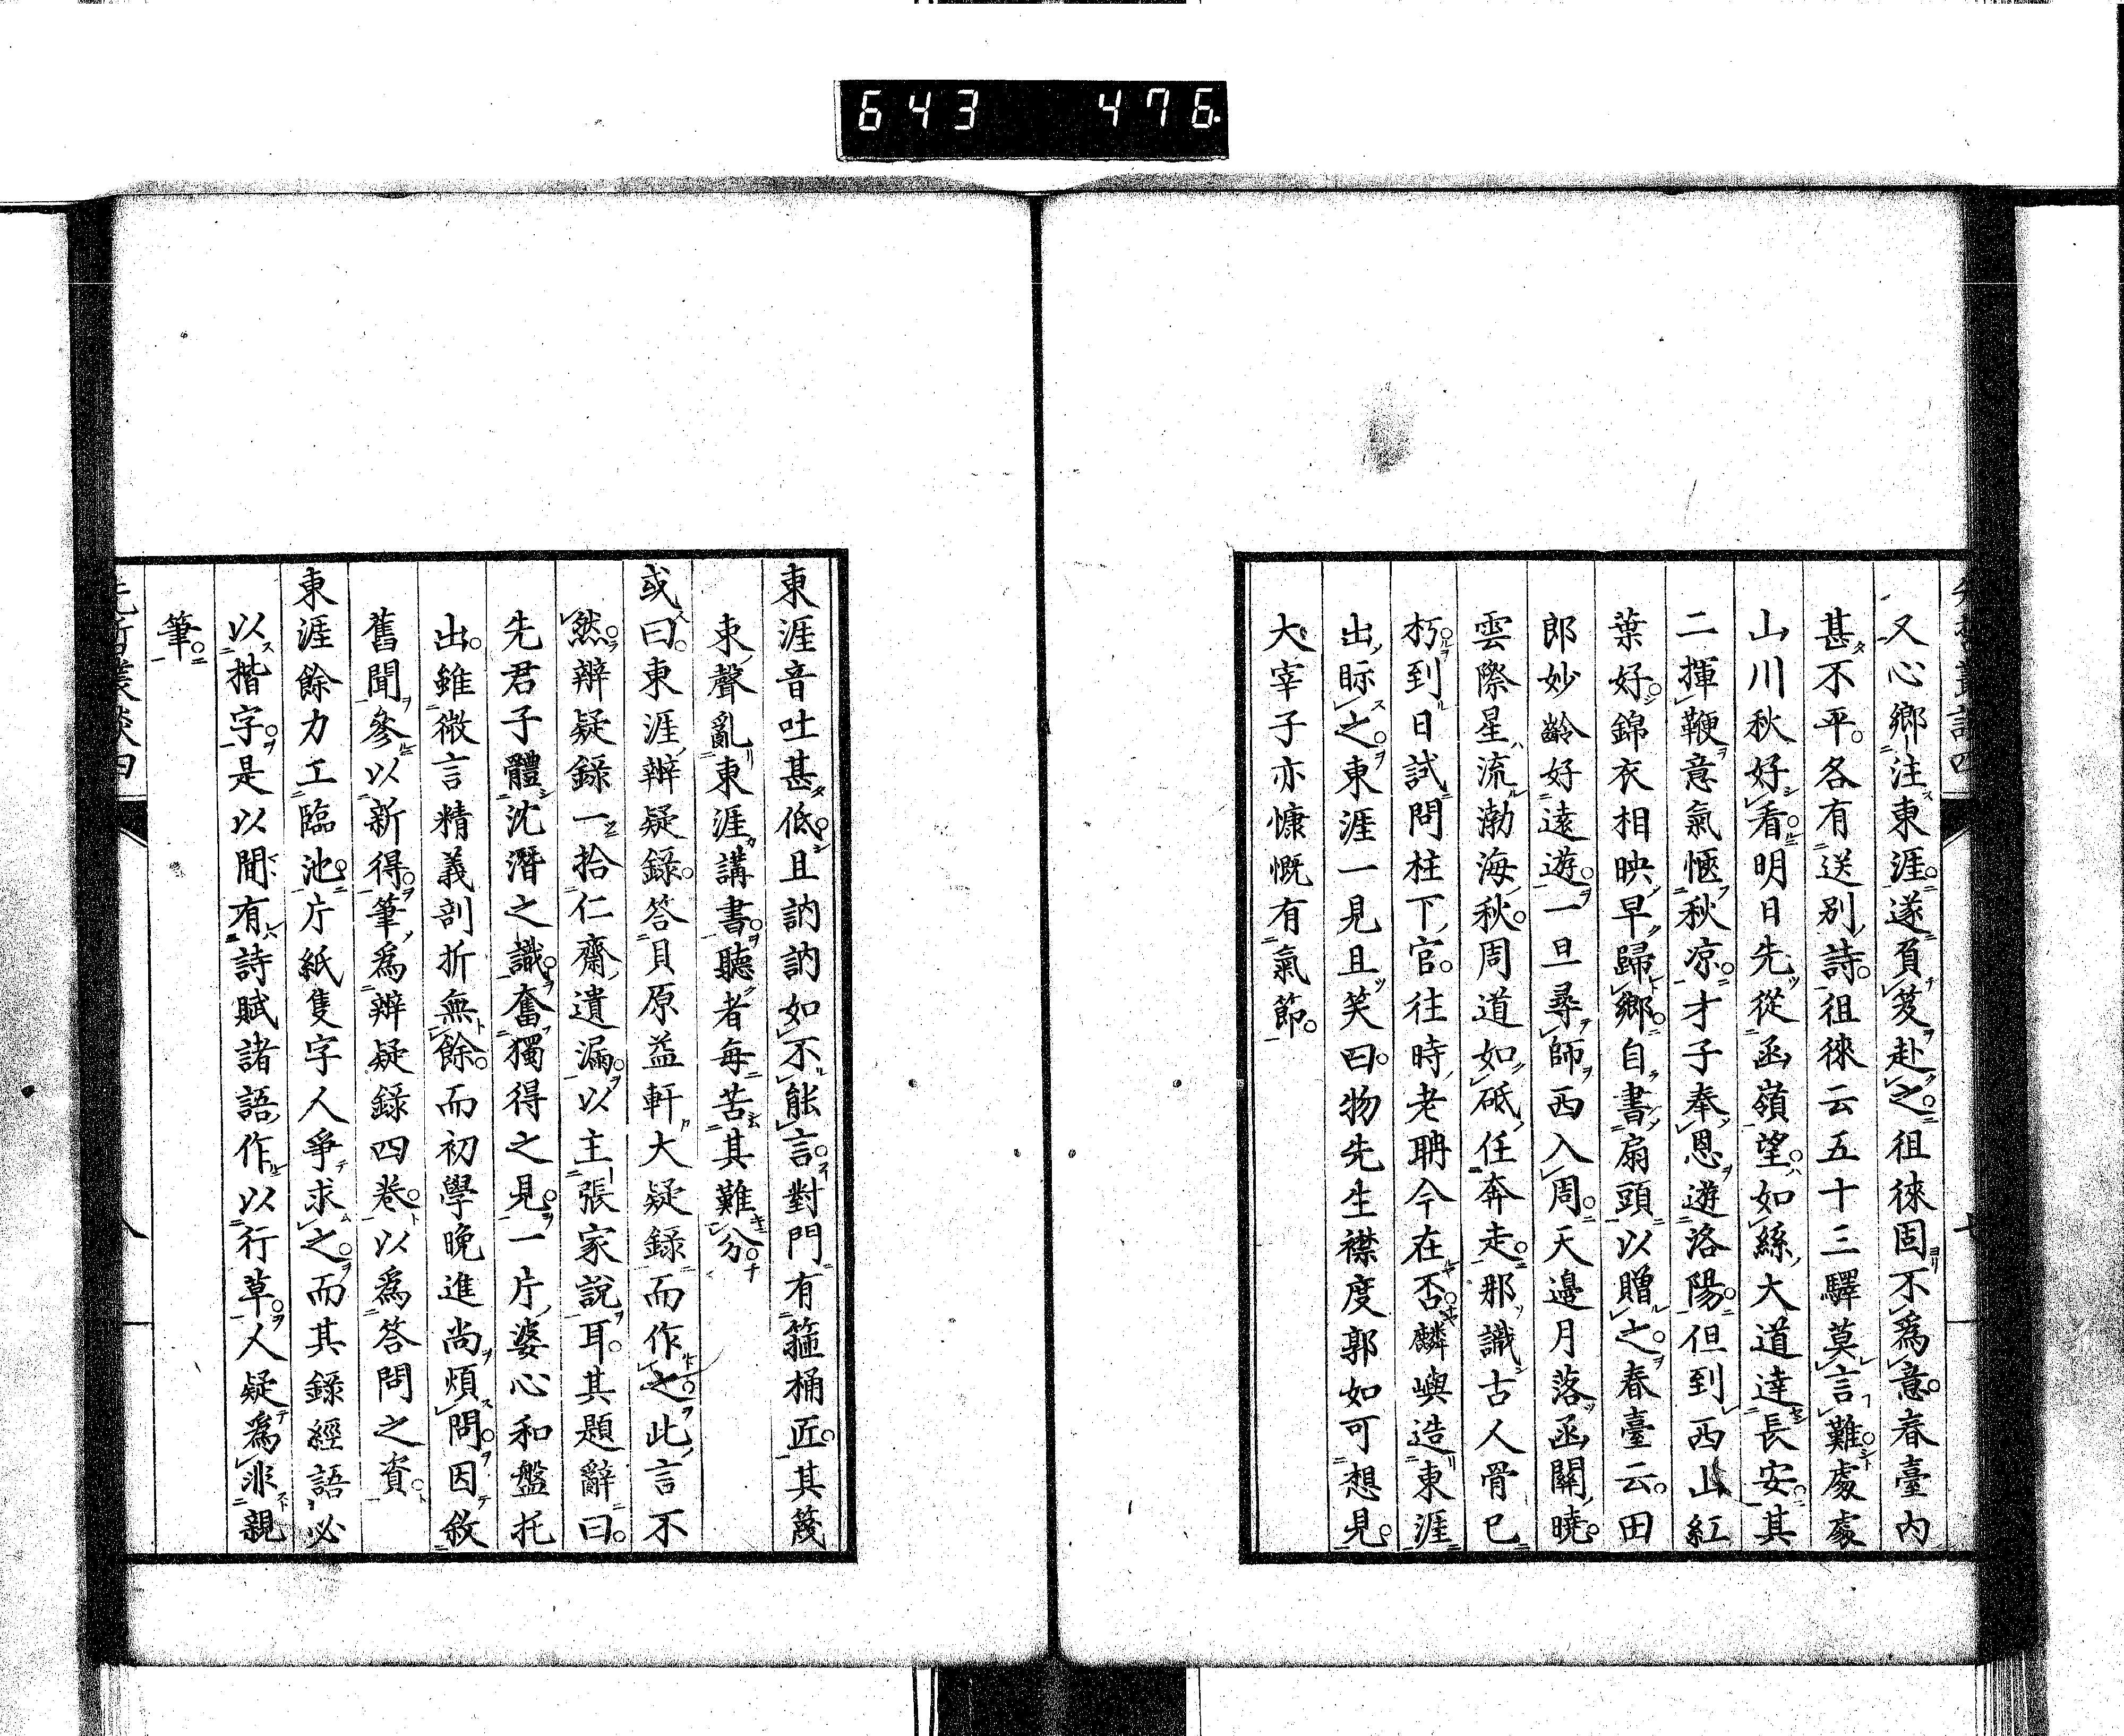 643 476
又心鄉注東涯遂負笈赴之徂徠固不爲意春臺內
甚不平各有送別詩徂徠云五十三驛莫言難處處
山川秋好看明日先從函嶺望如絲大道達長安其
二揮鞭意氣愜秋凉才子奉恩遊洛陽但到西山紅
葉好錦衣相映早歸鄉自書扇頭以贈之春臺云田
郎妙齡好遠遊一旦尋師西入周天邊月落函關曉
雲際星流渤海秋周道如砥任奔走那識古人骨已
朽到日試問柱下官往時老聃今在否麟嶼造東涯
出眎之東涯一見且笑曰物先生襟度郭如可想見
大宰子亦慷慨有氣節
東涯音吐甚低且訥訥如不能言對門有箍桶匠其篾
束聲亂東涯講書聽者每苦其難分
或曰東涯辨疑錄答貝原益軒大疑錄而作之此言不
然辨疑錄一拾仁齋遺漏以主張家說耳其題辭曰
先君子體沈潛之識奮獨得之見一片婆心和盤托
出雖微言精義剖折無餘而初學晚進尚煩問因敘
舊聞參以新得筆爲辨疑錄四卷以爲答問之資
東涯餘力工臨池片紙隻字人爭求之而其錄經語必
以楷字是以間有詩賦諸語作以行草人疑爲非親
筆